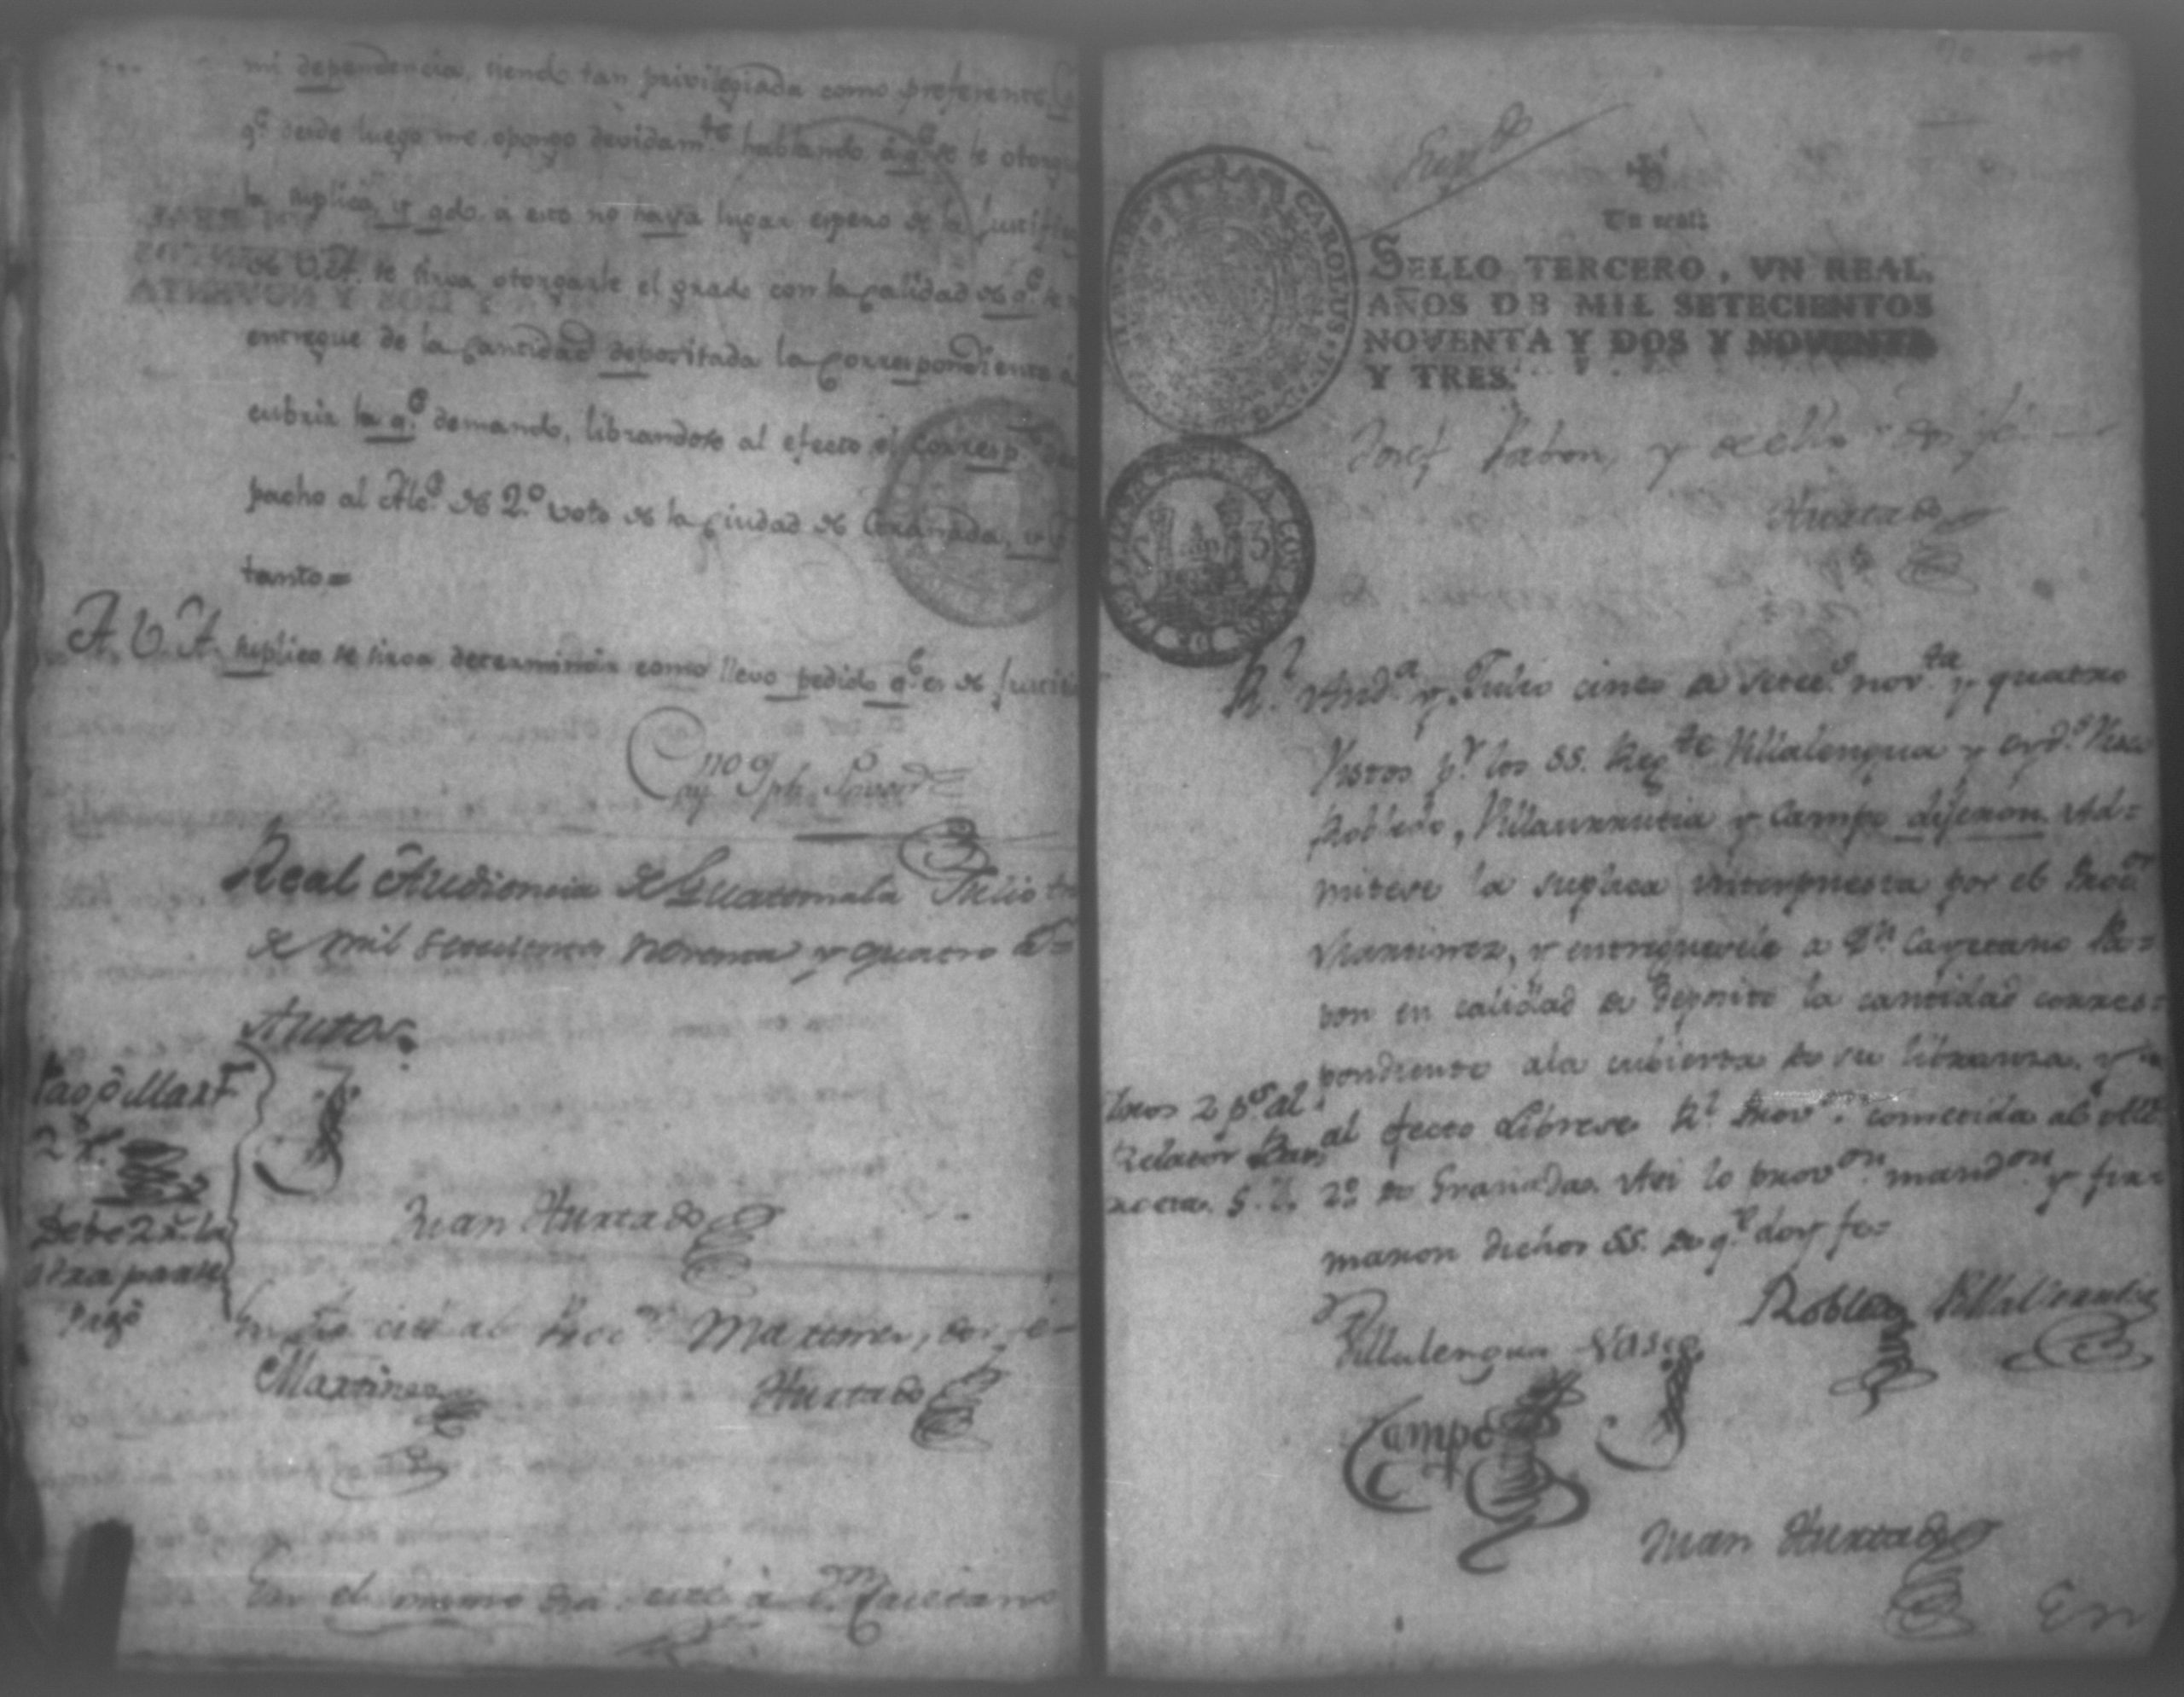 mi dependencia, siendo tan privilegiada como preferente
q.e desde luego me opongo devidam.te hablando á q.e se le otorgue
la suplica, y qdo. á esto no haya lugar espero de la Justific
de V.A. se sirva otorgarle el grado con la calidad de q.e se
entregue de la cantidad depositada la correspondiente á
cubrir la q.e demando, librandose al efecto el corresp.
pacho al Alc.e de 2.o voto de la Ciudad de Granada,
tanto=
A. V. A. suplico se sirva determinar como llevo pedido q.e es de Justicia
Cay.no Jph. Pavon
Real Audiencia de Guatemala Julio
de mil setecientos noventa y quatro a.s
Autos
Pagó Mart.
2 r.
Debe 2 r. la
otra parte
Pagó
Juan Hurtado
cité al Proc.r Martinez, doy fe
Martinez Hurtado
En el mismo dia cité á D.n Caietano
Un real
SELLO TERCERO, VN REAL.
AÑOS DE MIL SETECIENTOS
NOVENTA Y DOS Y NOVENTA
Y TRES.
CAROLUS
Josef Pabon, y de ello doy fe
Hurtado
R.l Aud.a y Julio cinco de setec.s nov.ta y quatro
Vistos p.r los SS. Reg.te Villalengua y oyd.s
Robledo, Villaurrutia y Campo dijeron Ad=
mitese la suplica interpuesta por el Proc.or
Martinez, y entreguesele a D.n Cayetano Pa=
von en calidad de deposito la cantidad corres=
pondiente ala cubierta de su libranza, y
al efecto Librese R.l Prov.on cometida al Alc.e
2.o de Granada. Asi lo prov.on mand.on y fir=
maron dichos SS. de q.e doy fe=
2 p.s al
Relator
Villalengua Robledo Villaurrutia
Campo
Juan Hurtado
En